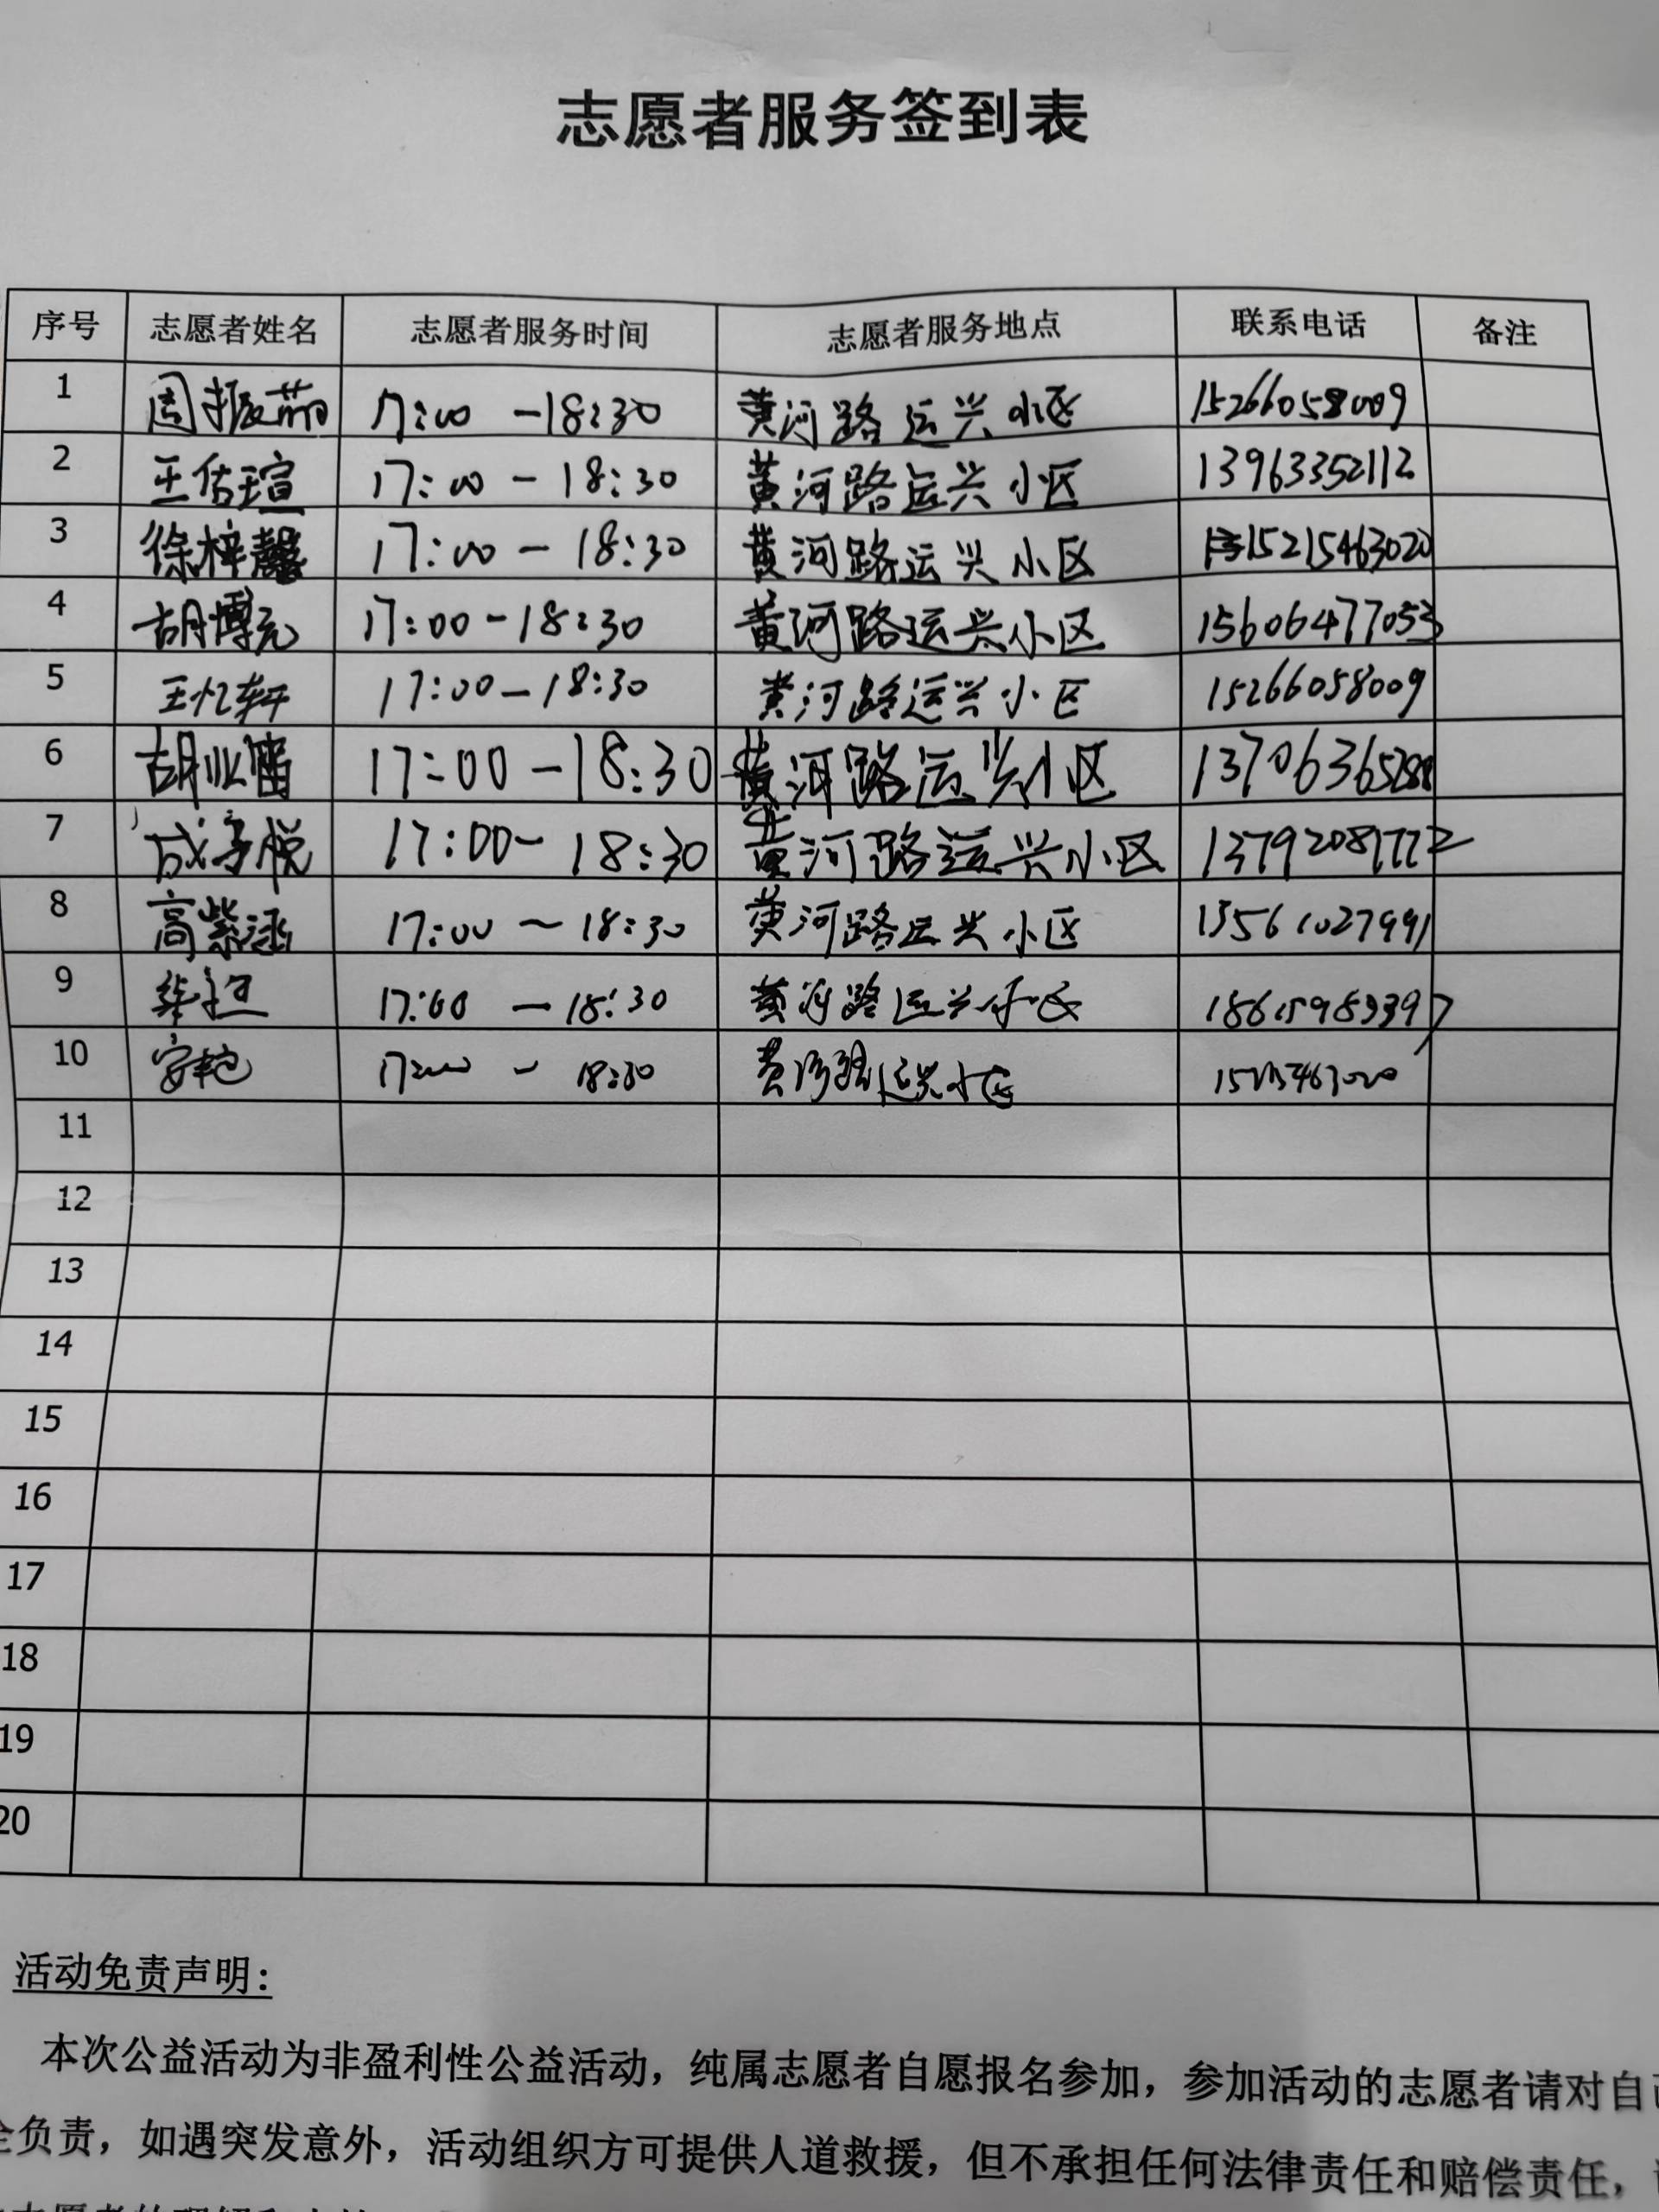 志愿者服务签到表
序号 志愿者姓名 志愿者服务时间 志愿者服务地点 联系电话 备注
1 周振茹 17:00 -18:30 黄河路运兴小区 15266058009
2 王佶瑄 17:00 - 18:30 黄河路运兴小区 13963352112
3 徐梓馨 17:00 - 18:30 黄河路运兴小区 15215463020
4 胡博元 17:00-18:30 黄河路运兴小区 15606477053
5 王忆轩 17:00-18:30 黄河路运兴小区 15266058009
6 17:00-18:30 黄河路运兴小区
7 成子悦 17:00-18:30 黄河路运兴小区
8 高紫涵 17:00~18:30 黄河路运兴小区 13561027991
9 17:00 -18:30 黄河路运兴小区
10 17:00 - 18:30 黄河路运兴小区 15215463020
11
12
13
14
15
16
17
18
19
20
活动免责声明：
本次公益活动为非盈利性公益活动，纯属志愿者自愿报名参加，参加活动的志愿者请对自
负责，如遇突发意外，活动组织方可提供人道救援，但不承担任何法律责任和赔偿责任，